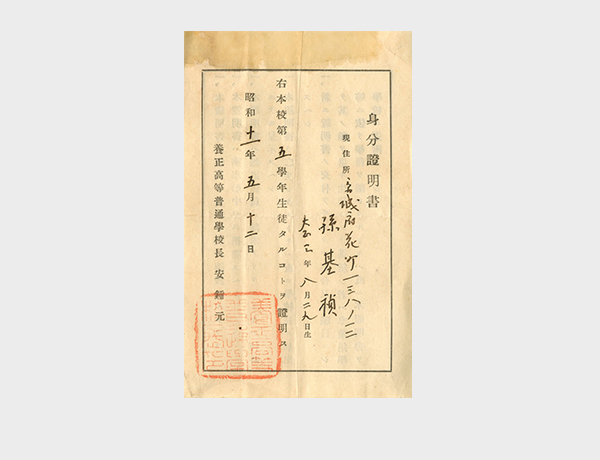 身分證明書
現住所 京城府花町一三八ノ一二
孫基禎
大正三年八月二九日生
右本校第五學年生徒タルコトヲ證明ス
昭和十一年五月十二日
養正高等普通學校長 安鍾元